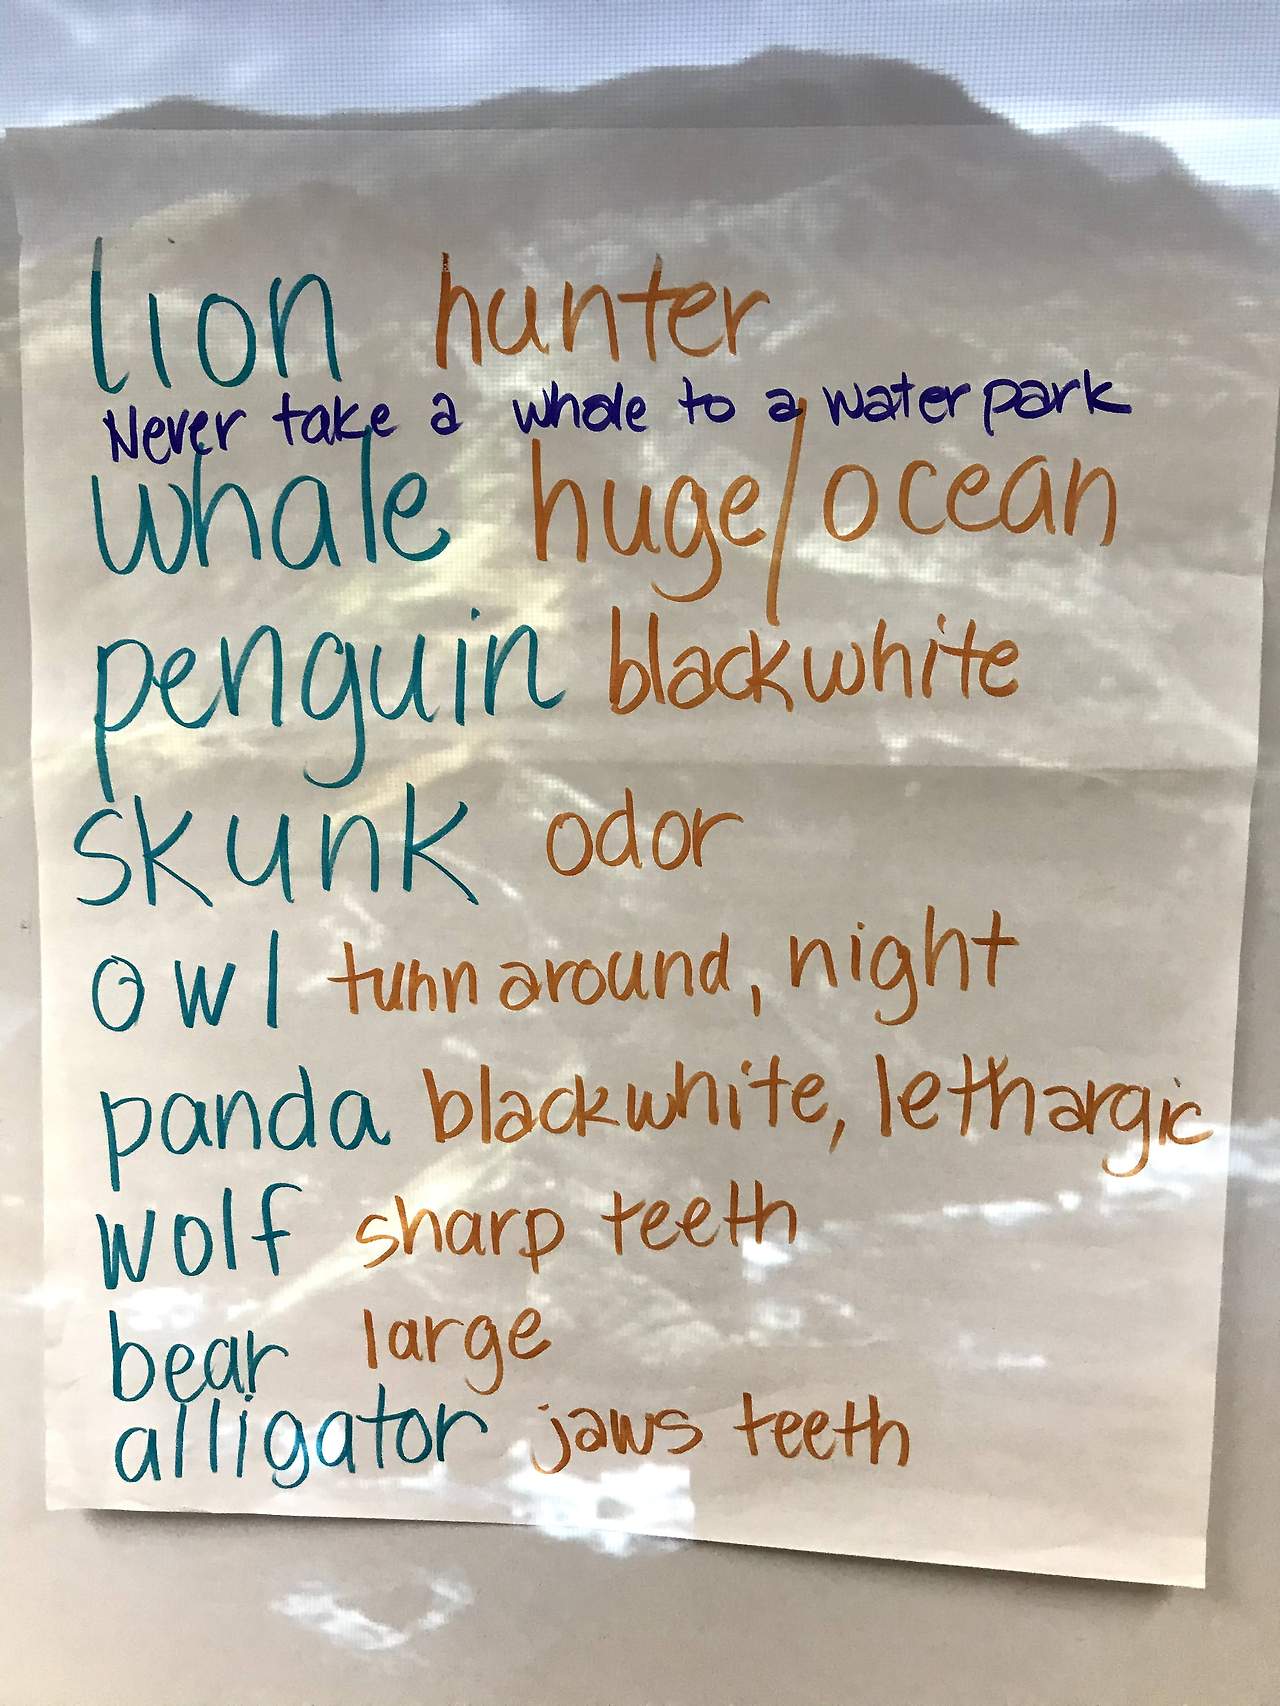 lion hunter
Never take a whale to a water park
whale huge/ocean
penguin black white
skunk odor
owl turn around, night
panda black white, lethargic
wolf sharp teeth
bear large
alligator jaws teeth